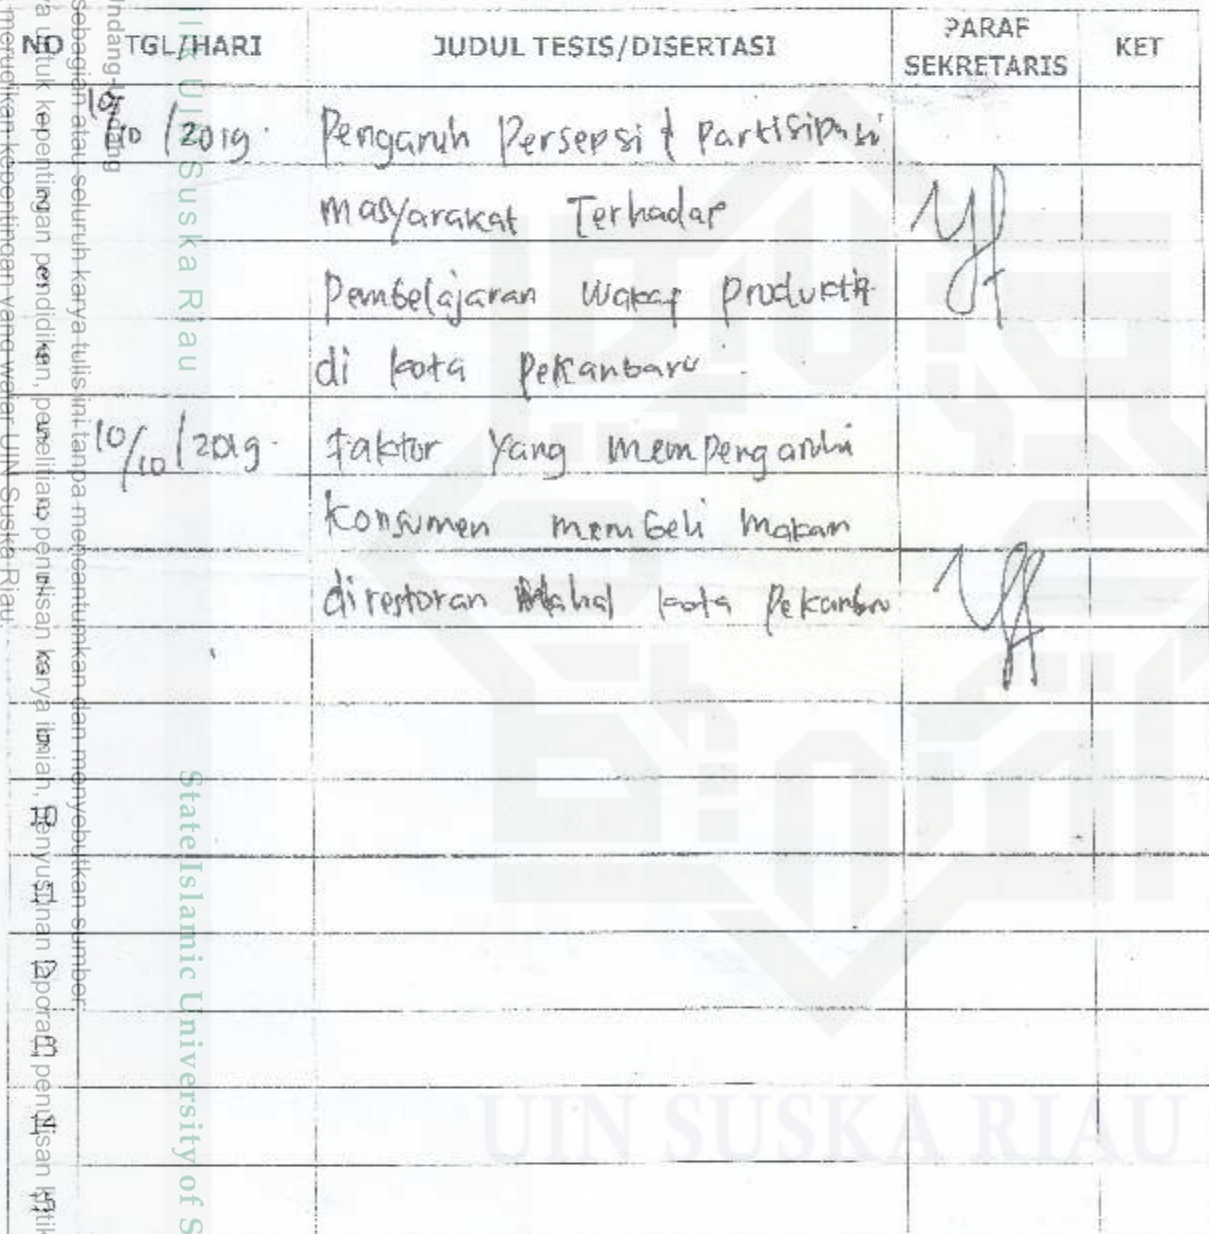 NO TGL/HARI JUDUL TESIS/DISERTASI PARAF SEKRETARIS KET
10/10/2019. Pengaruh Persepsi & Partisipasi
masyarakat Terhadap
Pembelajaran Wakaf Produktif
di kota Pekanbaru
10/10/2019. Faktor Yang mempengaruhi
Konsumen membeli makan
direstoran Mahal kota Pekanbru
10
11
12
13
14
15
UIN SUSKA RIAU
Undang-Undang
sebagian atau seluruh karya tulis ini tanpa mencantumkan dan menyebutkan sumber
untuk kepentingan pendidikan, penelitian, penulisan karya ilmiah, penyusunan laporan, penulisan kritik
merugikan kepentingan yang wajar UIN Suska Riau.
UIN Suska Riau
State Islamic University of S